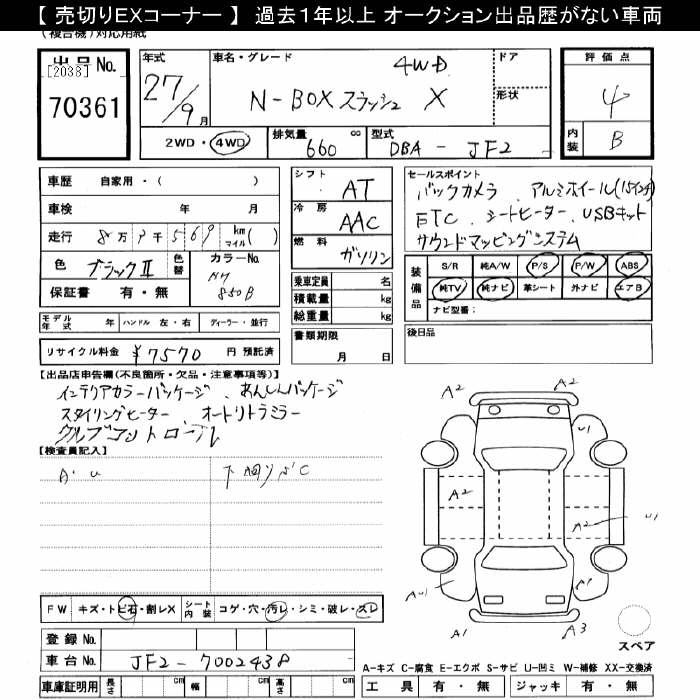 【 売切りEXコーナー 】 過去１年以上 オークション出品歴がない車両
(複合機)対応用紙
出品No. [2038] 70361
年式 27/9月
車名・グレード 4WD N-BOX スラッシュ X
ドア
形状
評価点 4
内装 B
2WD・4WD
排気量 660 cc
型式 DBA - JF2
車歴 自家用・( )
車検 年 月
走行 8万7千569 km マイル( )
色 ブラックⅡ 色替
カラーNo. NH 850B
保証書 有・無
シフト AT
冷房 AAC
燃料 ガソリン
乗車定員 名
積載量 kg
総重量 kg
セールスポイント
バックカメラ、アルミホイール(15インチ)
ETC、シートヒーター、USBキット
サウンドマッピングシステム
装備品
S/R 純A/W P/S P/W ABS
純TV 純ナビ 革シート 外ナビ エアB
ナビ型番:
モデル年式 年 ハンドル 左・右 ディーラー・並行
書類期限 月 日
後日品
リサイクル料金 ¥7570 円 預託済
【出品店申告欄(不良箇所・欠品・注意事項等)】
インテリアカラーパッケージ、あんしんパッケージ
スタイリングヒーター、オートリトラミラー
クルーズコントロール
【検査員記入】
下回りサビC
A2
A2
U1
A2
A2
U1
A1
A1
A3
FW キズ・トビ石・割レX シート内装 コゲ・穴・汚レ・シミ・破レ・スレ
登録No.
車台No. JF2-7002438
スペア
A-キズ C-腐食 E-エクボ S-サビ U-凹ミ W-補修 XX-交換済
車庫証明用 長さ cm 幅 cm 高さ cm
工具 有・無 ジャッキ 有・無